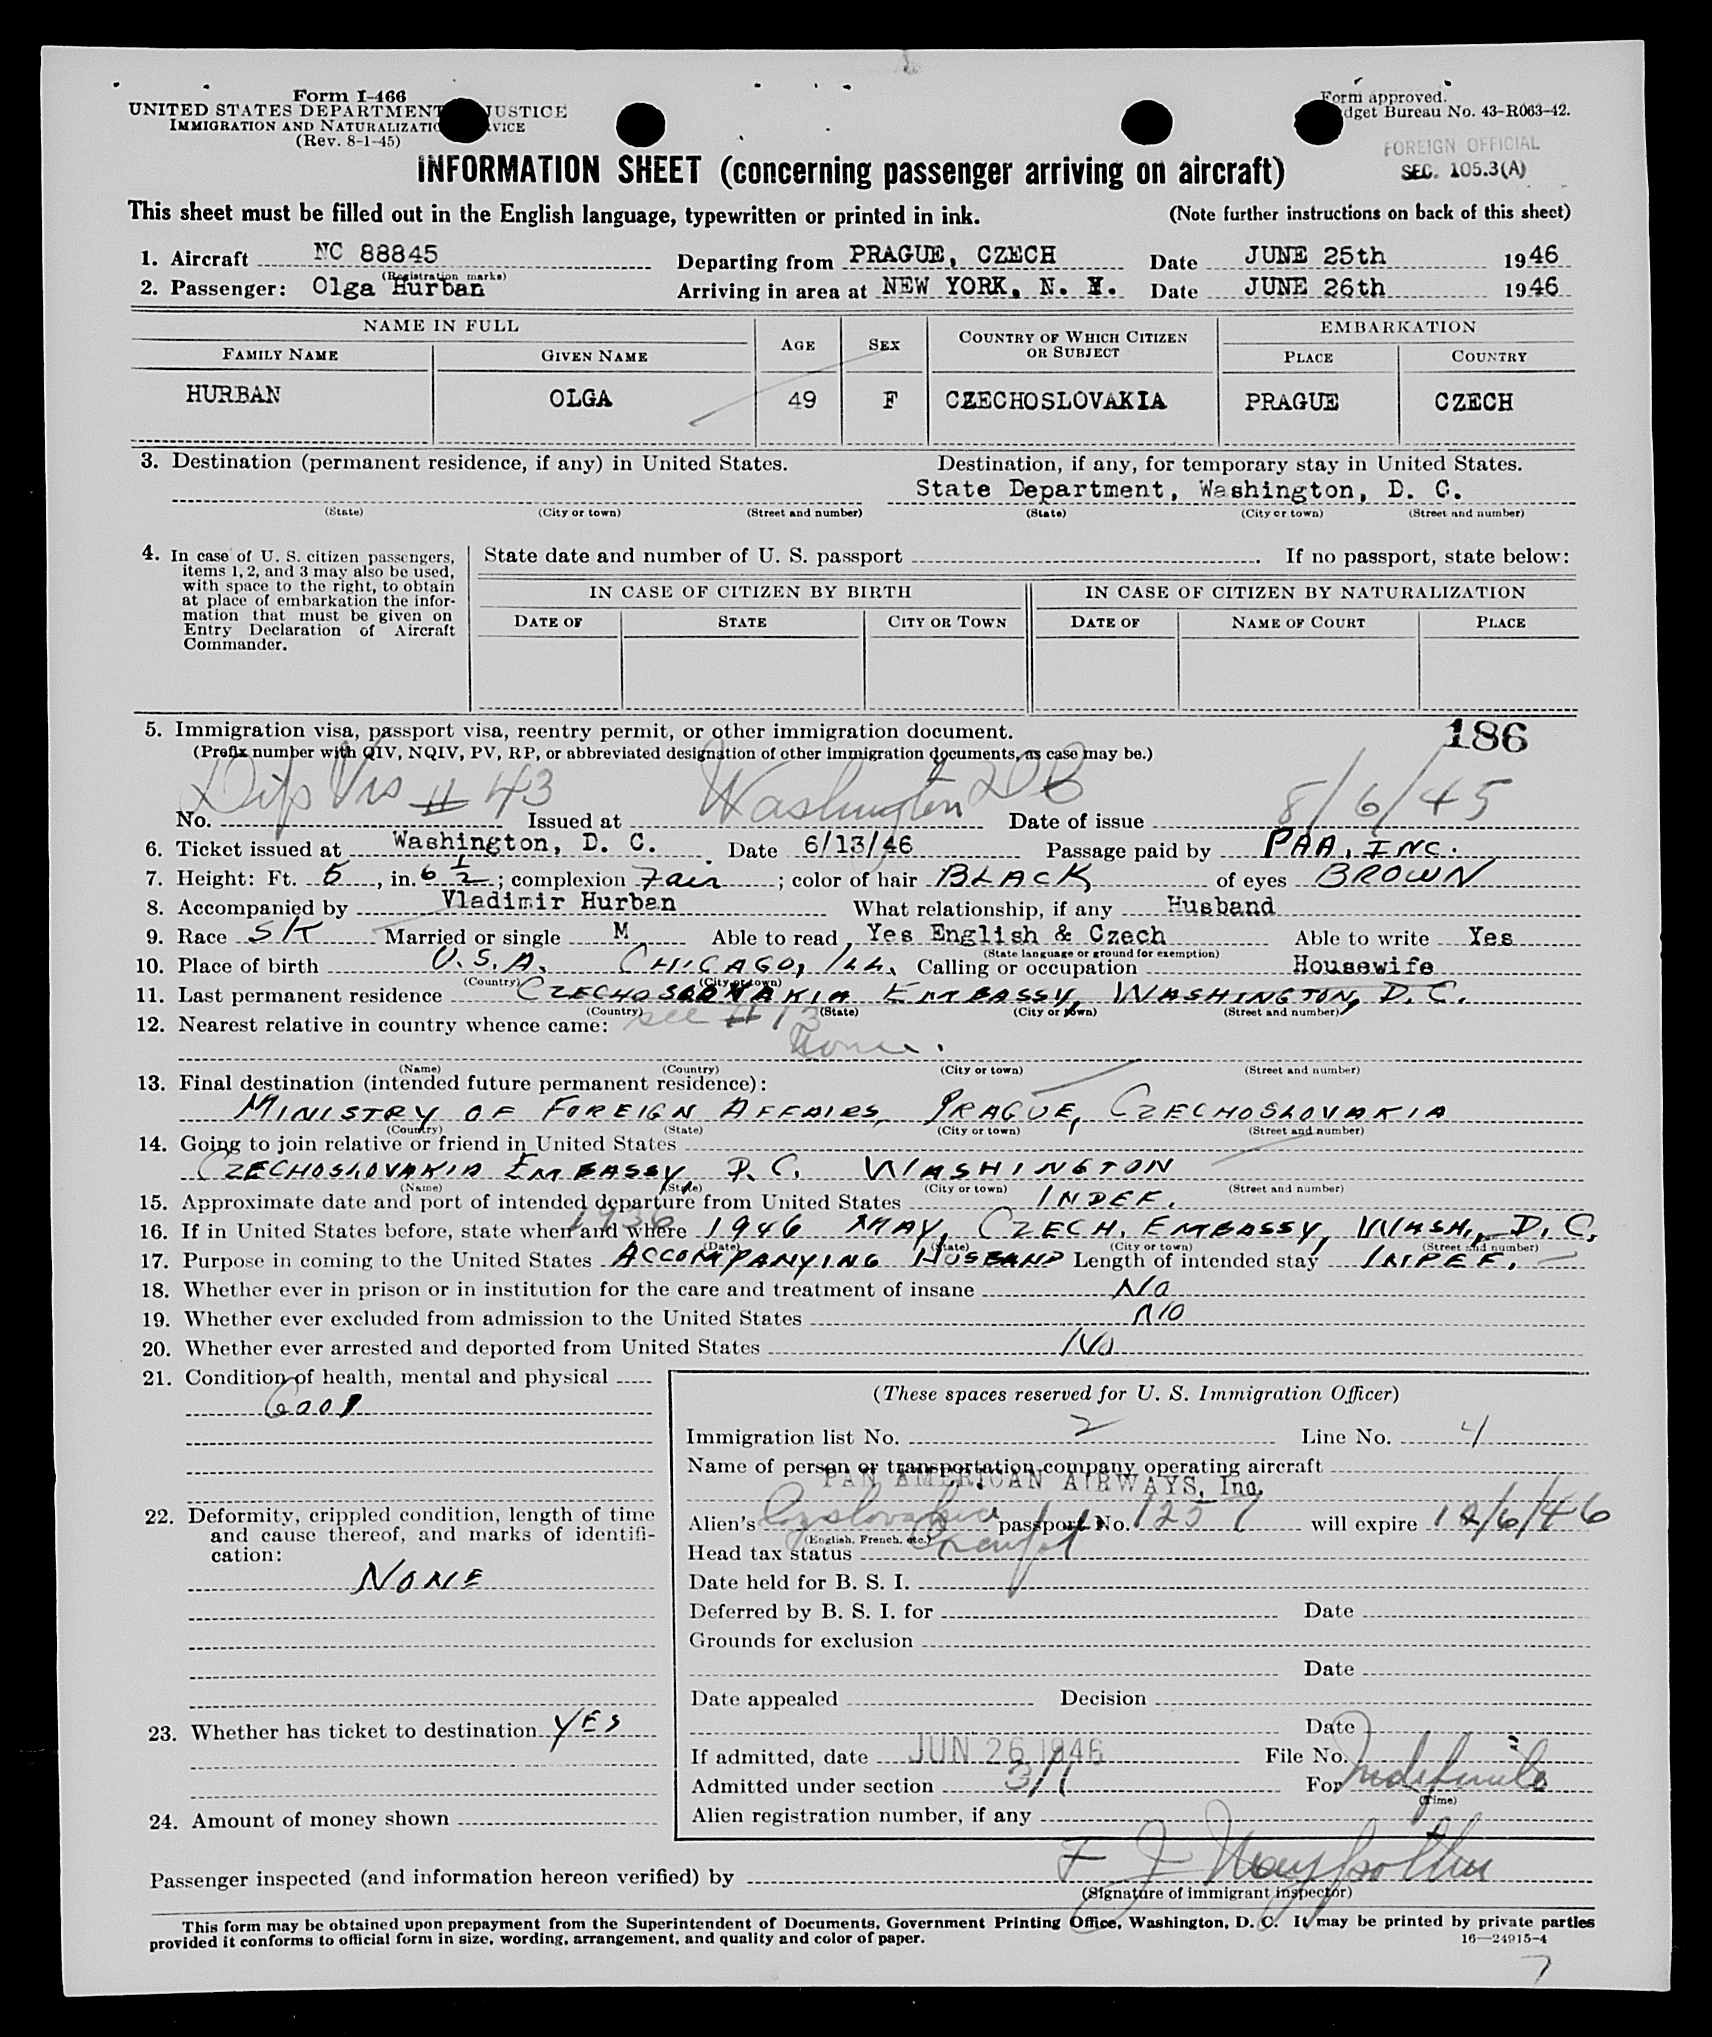 Form I-466
UNITED STATES DEPARTMENT JUSTICE
IMMIGRATION AND NATURALIZATIO VICE
(Rev. 8-1-45)
Form approved.
dget Bureau No. 43-R063-42.
FOREIGN OFFICIAL
SEC. 105.3(A)
INFORMATION SHEET (concerning passenger arriving on aircraft)
This sheet must be filled out in the English language, typewritten or printed in ink. (Note further instructions on back of this sheet)
1. Aircraft NC 88845 Departing from PRAGUE, CZECH Date JUNE 25th 1946
(Registration marks)
2. Passenger: Olga Hurban Arriving in area at NEW YORK, N. Y. Date JUNE 26th 1946
NAME IN FULL AGE SEX COUNTRY OF WHICH CITIZEN OR SUBJECT EMBARKATION
FAMILY NAME GIVEN NAME PLACE COUNTRY
HURBAN OLGA 49 F CZECHOSLOVAKIA PRAGUE CZECH
3. Destination (permanent residence, if any) in United States. Destination, if any, for temporary stay in United States.
State Department, Washington, D. C.
(State) (City or town) (Street and number) (State) (City or town) (Street and number)
4. In case of U. S. citizen passengers, items 1, 2, and 3 may also be used, with space to the right, to obtain at place of embarkation the information that must be given on Entry Declaration of Aircraft Commander.
State date and number of U. S. passport . If no passport, state below:
IN CASE OF CITIZEN BY BIRTH IN CASE OF CITIZEN BY NATURALIZATION
DATE OF STATE CITY OR TOWN DATE OF NAME OF COURT PLACE
5. Immigration visa, passport visa, reentry permit, or other immigration document. 186
(Prefix number with QIV, NQIV, PV, RP, or abbreviated designation of other immigration documents, as case may be.)
No. Dip Vis # 43 Issued at Washington Date of issue 8/6/45
6. Ticket issued at Washington, D. C. Date 6/13/46 Passage paid by PAA, INC.
7. Height: Ft. 5, in. 6 1/2; complexion Fair; color of hair BLACK of eyes BROWN
8. Accompanied by Vladimir Hurban What relationship, if any Husband
9. Race SK Married or single M Able to read Yes English & Czech Able to write Yes
(State language or ground for exemption)
10. Place of birth U.S.A. CHICAGO, ILL. Calling or occupation Housewife
(Country) (City or town)
11. Last permanent residence CZECHOSLOVAKIA EMBASSY, WASHINGTON, D.C.
(Country) (State) (City or town) (Street and number)
12. Nearest relative in country whence came: see # 13
None.
(Name) (Country) (City or town) (Street and number)
13. Final destination (intended future permanent residence):
MINISTRY OF FOREIGN AFFAIRS, PRAGUE, CZECHOSLOVAKIA
(Country) (State) (City or town) (Street and number)
14. Going to join relative or friend in United States
CZECHOSLOVAKIA EMBASSY, D.C. WASHINGTON
(Name) (State) (City or town) (Street and number)
15. Approximate date and port of intended departure from United States INDEF.
16. If in United States before, state when and where 1936 1946 MAY, CZECH. EMBASSY, WASH., D.C.
(Date) (State) (City or town) (Street and number)
17. Purpose in coming to the United States ACCOMPANYING HUSBAND Length of intended stay INDEF.
18. Whether ever in prison or in institution for the care and treatment of insane NO
19. Whether ever excluded from admission to the United States NO
20. Whether ever arrested and deported from United States NO
21. Condition of health, mental and physical
GOOD
22. Deformity, crippled condition, length of time and cause thereof, and marks of identification:
NONE
23. Whether has ticket to destination YES
24. Amount of money shown
(These spaces reserved for U. S. Immigration Officer)
Immigration list No. 2 Line No. 4
Name of person or transportation company operating aircraft
PAN AMERICAN AIRWAYS, Inc.
Alien's passport No. 1257 will expire 12/6/46
(English, French, etc.)
Head tax status Exempt
Date held for B. S. I.
Deferred by B. S. I. for Date
Grounds for exclusion
Date
Date appealed Decision
Date
If admitted, date JUN 26 1946 File No.
Admitted under section 3/1 For Indefinite
(Time)
Alien registration number, if any
Passenger inspected (and information hereon verified) by F J
(Signature of immigrant inspector)
This form may be obtained upon prepayment from the Superintendent of Documents, Government Printing Office, Washington, D. C. It may be printed by private parties
provided it conforms to official form in size, wording, arrangement, and quality and color of paper. 16—24915-4
7